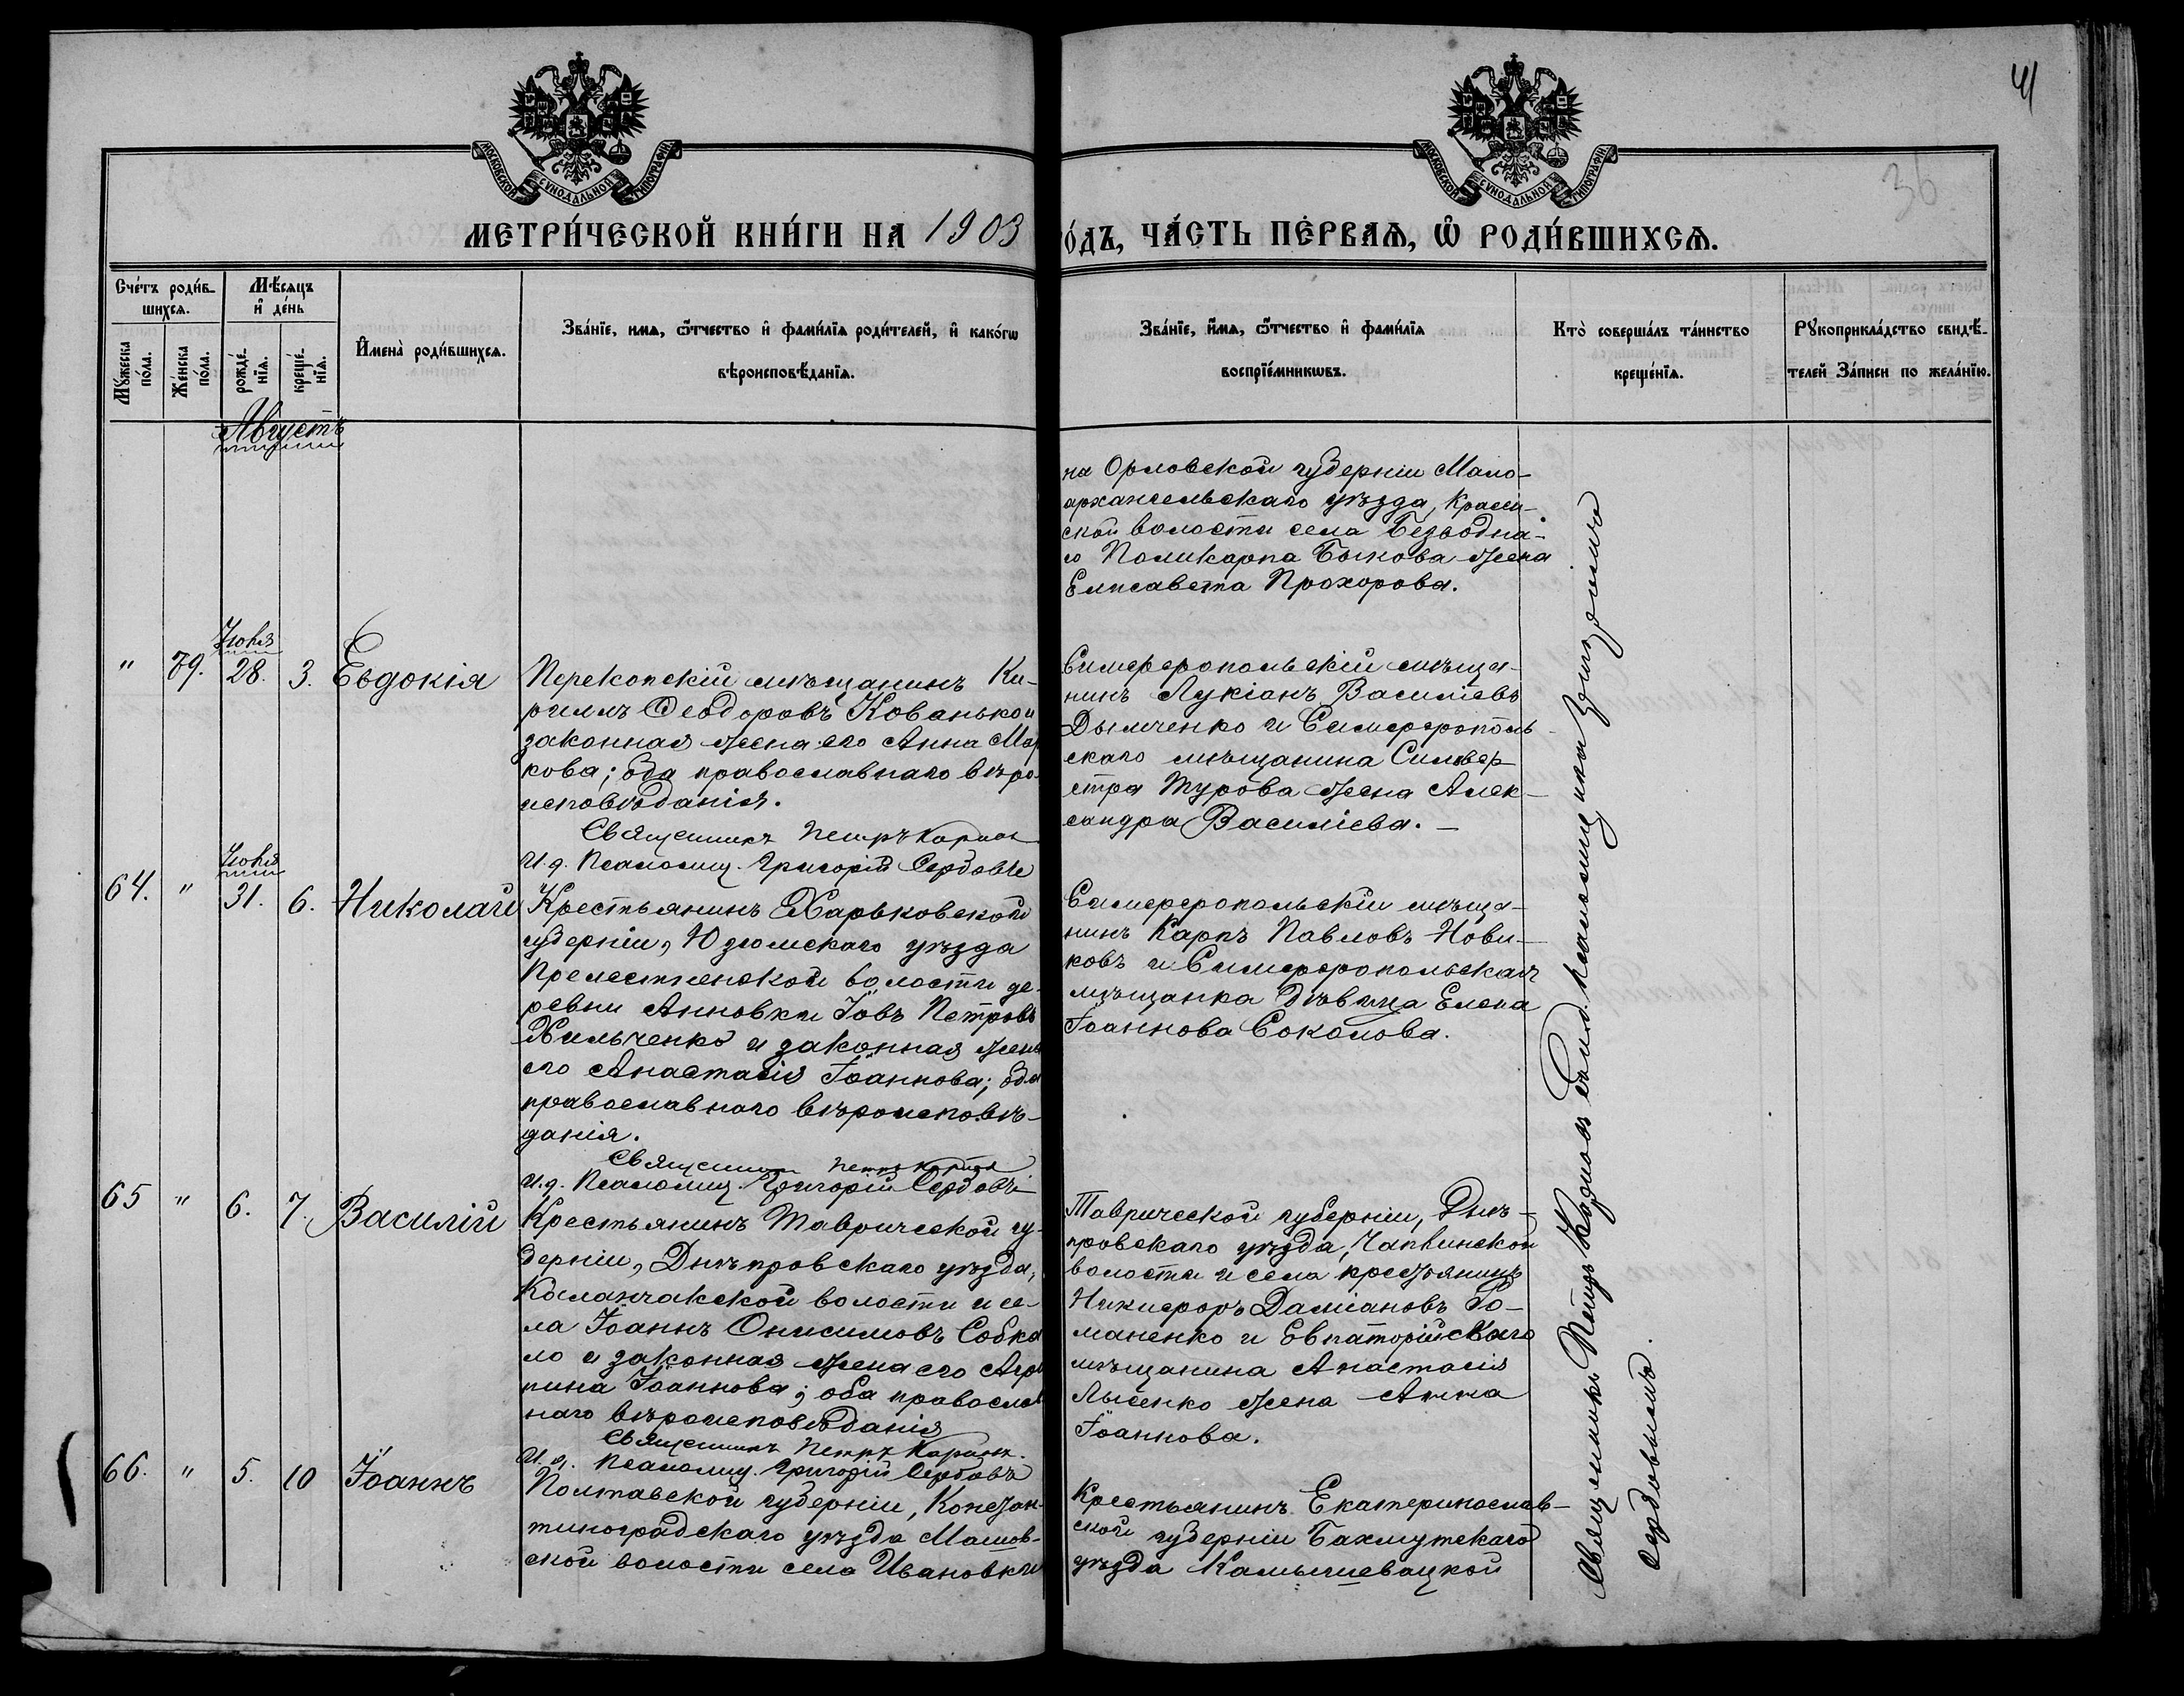 41
36
МОСКОВСКОЙ СѴНОДАЛЬНОЙ ТИПОГРАФІИ
МОСКОВСКОЙ СѴНОДАЛЬНОЙ ТИПОГРАФІИ
МЕТРИ́ЧЕСКОЙ КНИ́ГИ НА 1903
ГО́ДЪ, ЧА́СТЬ ПЕ́РВАѦ, Ѡ҆ РОДИ́ВШИХСѦ.
Сче́тъ роди́в-
шихсѧ.
Мѣ́сѧцъ
и҆ де́нь
Мꙋ́жеска по́ла.
Же́нска по́ла.
рожде́-
нїѧ.
креще́-
нїѧ.
И҆мена̀ роди́вшихсѧ.
Зва́нїе, имѧ, ѻ҆́тчество и҆ фами́лїѧ роди́телей, и҆ како́гѡ
вѣроисповѣ́данїѧ.
Зва́нїе, и҆́мѧ, ѻ҆́тчество и҆ фами́лїѧ
воспрїе́мникѡвъ.
Кто̀ соверша́лъ та́инство
креще́нїѧ.
Рꙋкоприкла́дство свидѣ́-
телей За́писи по жела́нїю.
Августъ
на Орловской губерніи Мало-
архангельскаго уѣзда,
ской волости села Безводна-
го Поликарпа Быкова жена
Елисавета Прохорова.
Іюля
" 79. 28. 3. Евдокія
Перекопскій мѣщанинъ Ки-
риллъ Ѳеодоровъ Кованько и
законная жена его Анна Мар
кова; оба православнаго вѣро-
исповѣданія.
Священникъ Петръ
И. д. Псаломщ. Григорій
Симферопольскій мѣща-
нинъ Лукіанъ Василіевъ
Дымченко и Симферополь-
скаго мѣщанина Сильвер-
стра Турова жена Алек-
сандра Василіева. —
Іюля
64. " 31. 6. Николай
Крестьянинъ Харьковской
губерніи, Изюмскаго уѣзда
волости де-
ревни Анновки Іовъ Петровъ
Хильченко и законная жена
его Анастасія Іоаннова; оба
православнаго вѣроисповѣ-
данія.
Священникъ Петръ
И. д. Псаломщ. Григорій
Симферопольскій мѣща-
нинъ Карпъ Павловъ Нови-
ковъ и Симферопольская
мѣщанка дѣвица Елена
Іоаннова Соколова.
65 " 6. 7. Василій
Крестьянинъ Таврической гу-
берніи, Днѣпровскаго уѣзда,
Каланчакской волости и се-
ла Іоаннъ Онисимовъ Собка
ло и законная жена его Агри
пина Іоаннова; оба православ
наго вѣроисповѣданія
Священникъ Петръ
И. д. Псаломщ. Григорій
Таврической губерніи, Днѣ-
провскаго уѣзда, Чаплинской
волости и села крестьянинъ
Никифоръ Даміановъ Го-
маненко и Евпаторійскаго
мѣщанина Анастасія
Лысенко жена Анна
Іоаннова.
66. " 5. 10 Іоаннъ
Полтавской губерніи, Констан-
тиноградскаго уѣзда Машов-
ской волости села Ивановки
Крестьянинъ Екатеринослав-
ской губерніи Бахмутскаго
уѣзда Камышевацкой
Священникъ Петръ псаломщика Григоріемъ